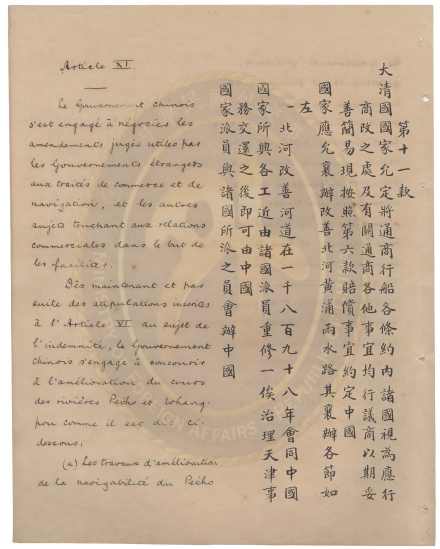 Article XI
Le Gouvernement chinois
s'est engagé à négocier les
amendements jugés utiles par
les Gouvernements étrangers
aux traités de commerce et de
navigation, et les autres
sujets touchant aux relations
commerciales dans le but de
les faciliter.
Dès maintenant et par
suite des stipulations inscrites
à l'Article VI au sujet de
l'indemnité, le Gouvernement
chinois s'engage à concourir
à l'amélioration du cours
des rivières Peiho et Whang-
pou comme il est dit ci-
dessous:
(a) Les travaux d'amélioration
de la navigabilité du Peiho
第十一款
大清國國家允定將通商行船各條約內諸國視為應行
商改之處及有關通商各他事宜均行議商以期妥
善簡易現按照第六款賠償事宜約定中國
國家應允襄辦改善北河黃浦兩水路其襄辦各節如
左
一北河改善河道在一千八百九十八年會同中國
國家所興各工近由諸國派員重修一俟治理天津事
務交還之後即可由中國
國家派員與諸國所派之員會辦中國